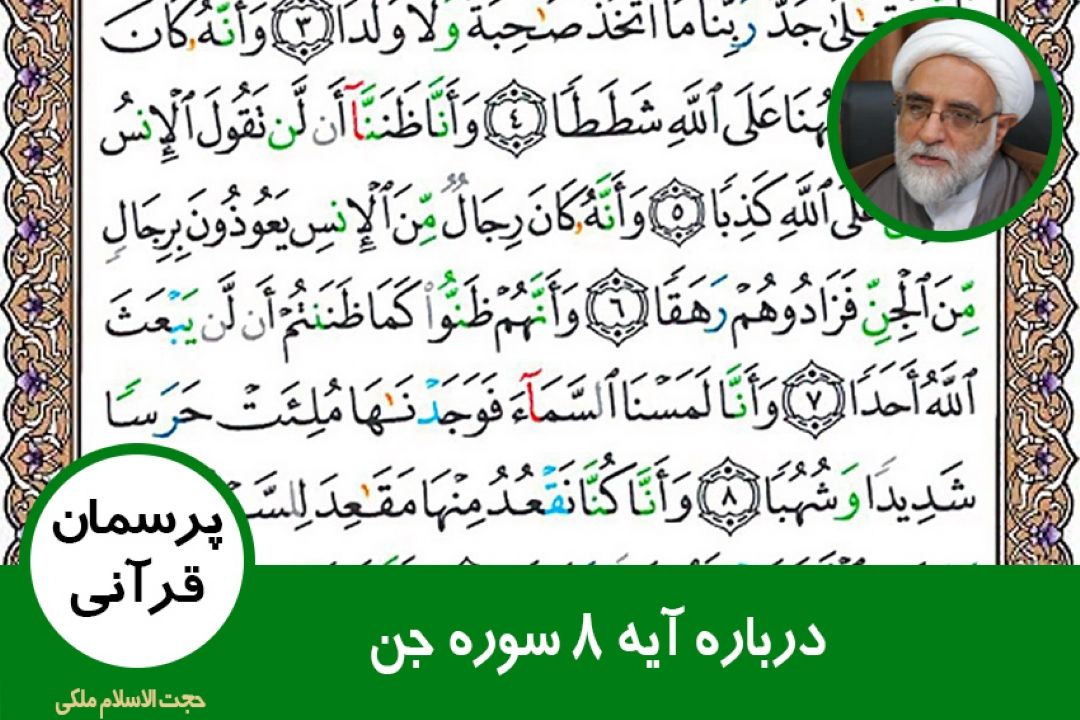 جَدُّ رَبِّنَا مَا ٱتَّخَذَ صَـٰحِبَةً وَلَا وَلَدًا ٣ وَأَنَّهُۥ كَانَ
عَلَى ٱللَّهِ شَطَطًا ٤ وَأَنَّا ظَنَنَّآ أَن لَّن تَقُولَ ٱلْإِنسُ
عَلَى ٱللَّهِ كَذِبًا ٥ وَأَنَّهُۥ كَانَ رِجَالٌ مِّنَ ٱلْإِنسِ يَعُوذُونَ بِرِجَالٍ
مِّنَ ٱلْجِنِّ فَزَادُوهُمْ رَهَقًا ٦ وَأَنَّهُمْ ظَنُّوا۟ كَمَا ظَنَنتُمْ أَن لَّن يَبْعَثَ
ٱللَّهُ أَحَدًا ٧ وَأَنَّا لَمَسْنَا ٱلسَّمَآءَ فَوَجَدْنَـٰهَا مُلِئَتْ حَرَسًا
شَدِيدًا وَشُهُبًا ٨ وَأَنَّا كُنَّا نَقْعُدُ مِنْهَا مَقَـٰعِدَ
پرسمان
قرآنی
درباره آیه ۸ سوره جن
حجت الاسلام ملکی